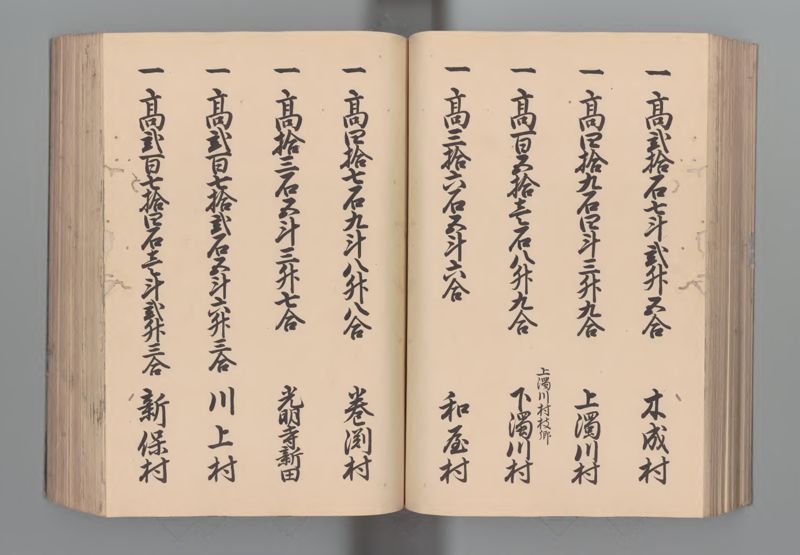 一 高弐拾石七斗弐升五合 木成村
一 高四拾九石四斗三升九合 上濁川村
一 高百五拾壱石八升九合 上濁川村枝郷 下濁川村
一 高三拾六石五斗六合 和屋村
一 高四拾七石九斗八升八合 巻渕村
一 高拾三石五斗三升七合 光明寺新田
一 高弐百七拾弐石五斗六升三合 川上村
一 高弐百七拾四石壱斗弐升三合 新保村